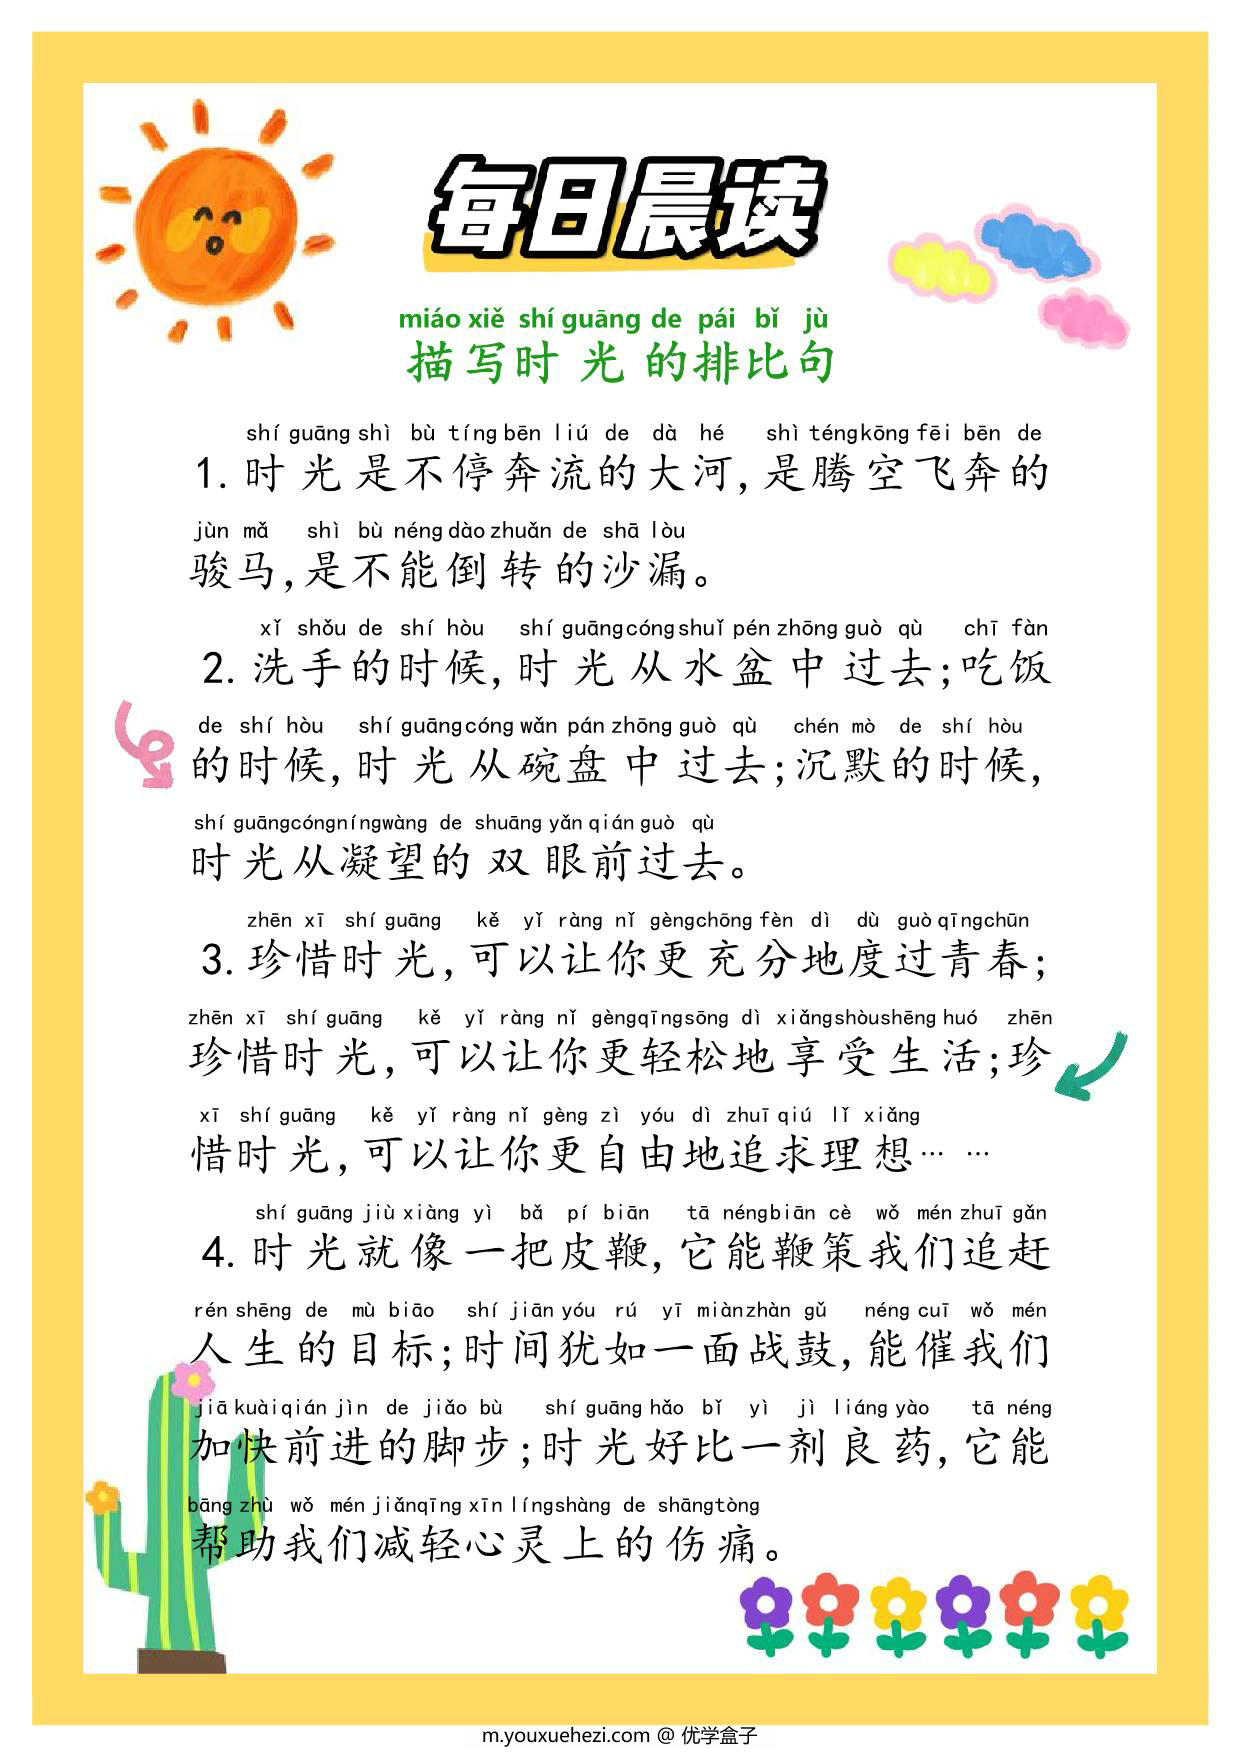 每日晨读
miáo xiě shí guāng de pái bǐ jù
描写时光的排比句
shí guāng shì bù tíng bēn liú de dà hé shì téng kōng fēi bēn de
1.时光是不停奔流的大河,是腾空飞奔的
jùn mǎ shì bù néng dào zhuǎn de shā lòu
骏马,是不能倒转的沙漏。
xǐ shǒu de shí hòu shí guāng cóng shuǐ pén zhōng guò qù chī fàn
2.洗手的时候,时光从水盆中过去;吃饭
de shí hòu shí guāng cóng wǎn pán zhōng guò qù chén mò de shí hòu
的时候,时光从碗盘中过去;沉默的时候,
shí guāng cóng níng wàng de shuāng yǎn qián guò qù
时光从凝望的双眼前过去。
zhēn xī shí guāng kě yǐ ràng nǐ gèng chōng fèn dì dù guò qīng chūn
3.珍惜时光,可以让你更充分地度过青春;
zhēn xī shí guāng kě yǐ ràng nǐ gèng qīng sōng dì xiǎng shòu shēng huó zhēn
珍惜时光,可以让你更轻松地享受生活;珍
xī shí guāng kě yǐ ràng nǐ gèng zì yóu dì zhuī qiú lǐ xiǎng
惜时光,可以让你更自由地追求理想……
shí guāng jiù xiàng yì bǎ pí biān tā néng biān cè wǒ mén zhuī gǎn
4.时光就像一把皮鞭,它能鞭策我们追赶
rén shēng de mù biāo shí jiān yóu rú yī miàn zhàn gǔ néng cuī wǒ mén
人生的目标;时间犹如一面战鼓,能催我们
jiā kuài qián jìn de jiǎo bù shí guāng hǎo bǐ yì jì liáng yào tā néng
加快前进的脚步;时光好比一剂良药,它能
bāng zhù wǒ mén jiǎn qīng xīn líng shàng de shāng tòng
帮助我们减轻心灵上的伤痛。
m.youxuehezi.com @ 优学盒子